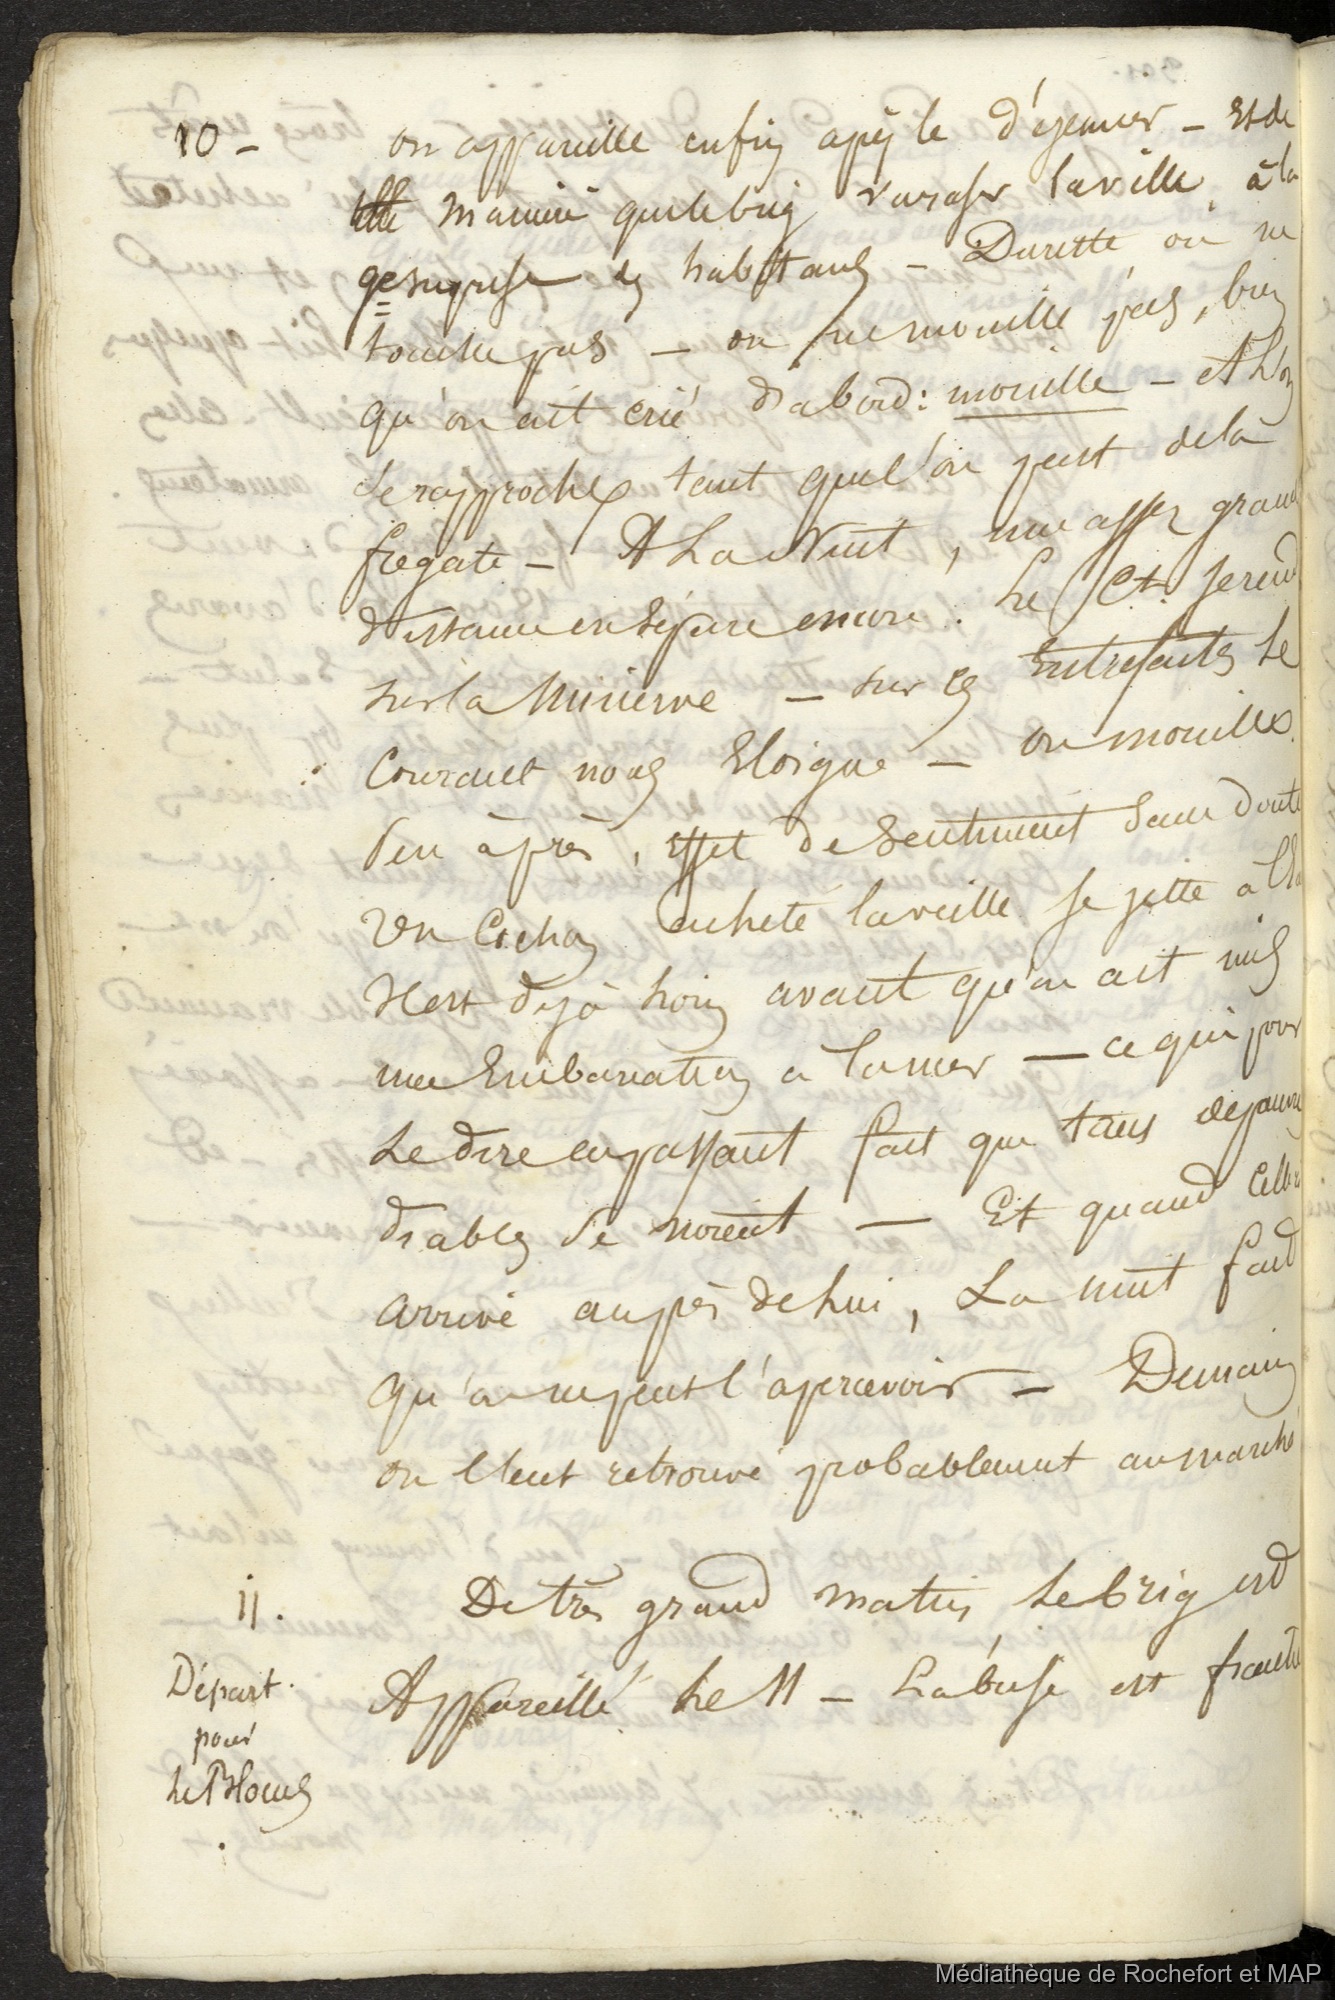 10 - on appareille enfin après le déjeuner - Et de
telle manière que le brig va raser la ville, à la
gde surprise des habitans - Dureste on ne
touche pas - on ne mouille pas, bien
qu'on ait crié d'abord : mouille - et l'on
se rapproche tant que l'on peut de la
fregate - A La Nuit, une assez grande
distance en sépare encore. Le Ct. se rend
sur la Minerve - sur ces Entrefaites le
Courant nous Eloigne - on mouille.
Peu après, effet de sentiment sans doute
un Cochon acheté la veille se jette à l'Eau
Il est déjà loin avant qu'on ait mis
une Embarcation à la mer - ce qui pour
le dire en passant fait que tant de pauvres
diables se noient - Et quand celle ci
arrive auprès de lui, La nuit fait
qu'on ne peut l'apercevoir - Demain
on l'eut retrouvé probablement au marché
11. De très grand matin le brig est
Appareillé le 11 - La brise est franche
Départ
pour
le Blocus
Médiathèque de Rochefort et MAP